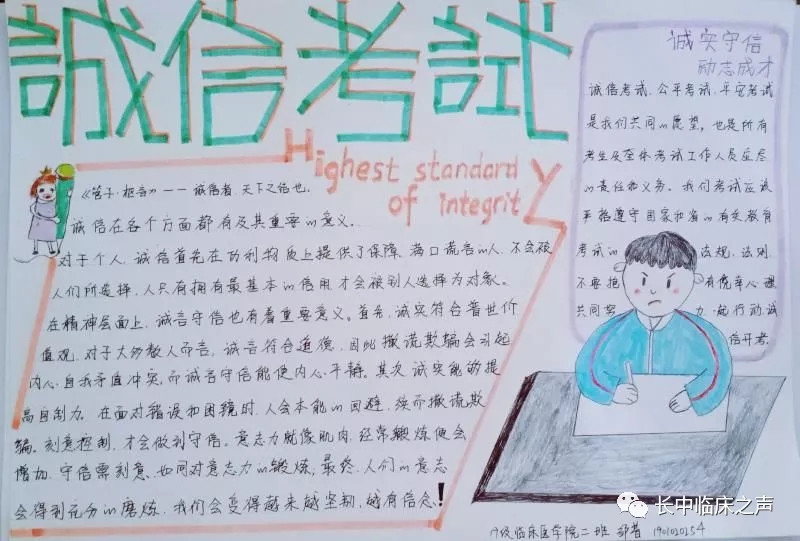 誠信考試
Highest standard
of integritY
《管子·枢言》——诚信者,天下之结也.
诚信在各个方面都有及其重要的意义.
对于个人,诚信首先在功利物质上提供了保障,满口谎言的人,不会被
人们所选择,人只有拥有最基本的信用才会被别人选择为对象。
在精神层面上,诚言守信也有着重要意义。首先,诚实符合普世价
值观,对于大多数人而言,诚言符合道德,因此撒谎欺骗会引起
内心自我矛盾冲突,而诚言守信能使内心平静。其次,诚实能够提
高自制力。在面对错误和困境时,人会本能的回避,续而撒谎欺
骗。刻意控制,才会做到守信。意志力就像肌肉,经常锻炼便会
增加,守信需刻意,如同对意志力的锻炼,最终,人们的意志
会得到充分的磨炼,我们会变得越来越坚韧,越有信念!
诚实守信
励志成才
诚信考试,公平考试,平安考试
是我们共同的愿望,也是所有
考生及全体考试工作人员应尽
的责任和义务。我们考试应该
严格遵守国家和省的有关教育
考试的 法规,法则,
不要抱 有侥幸心理
共同努 力,一起行动,诚
信开考.
临床医学院二班 190102154
长中临床之声